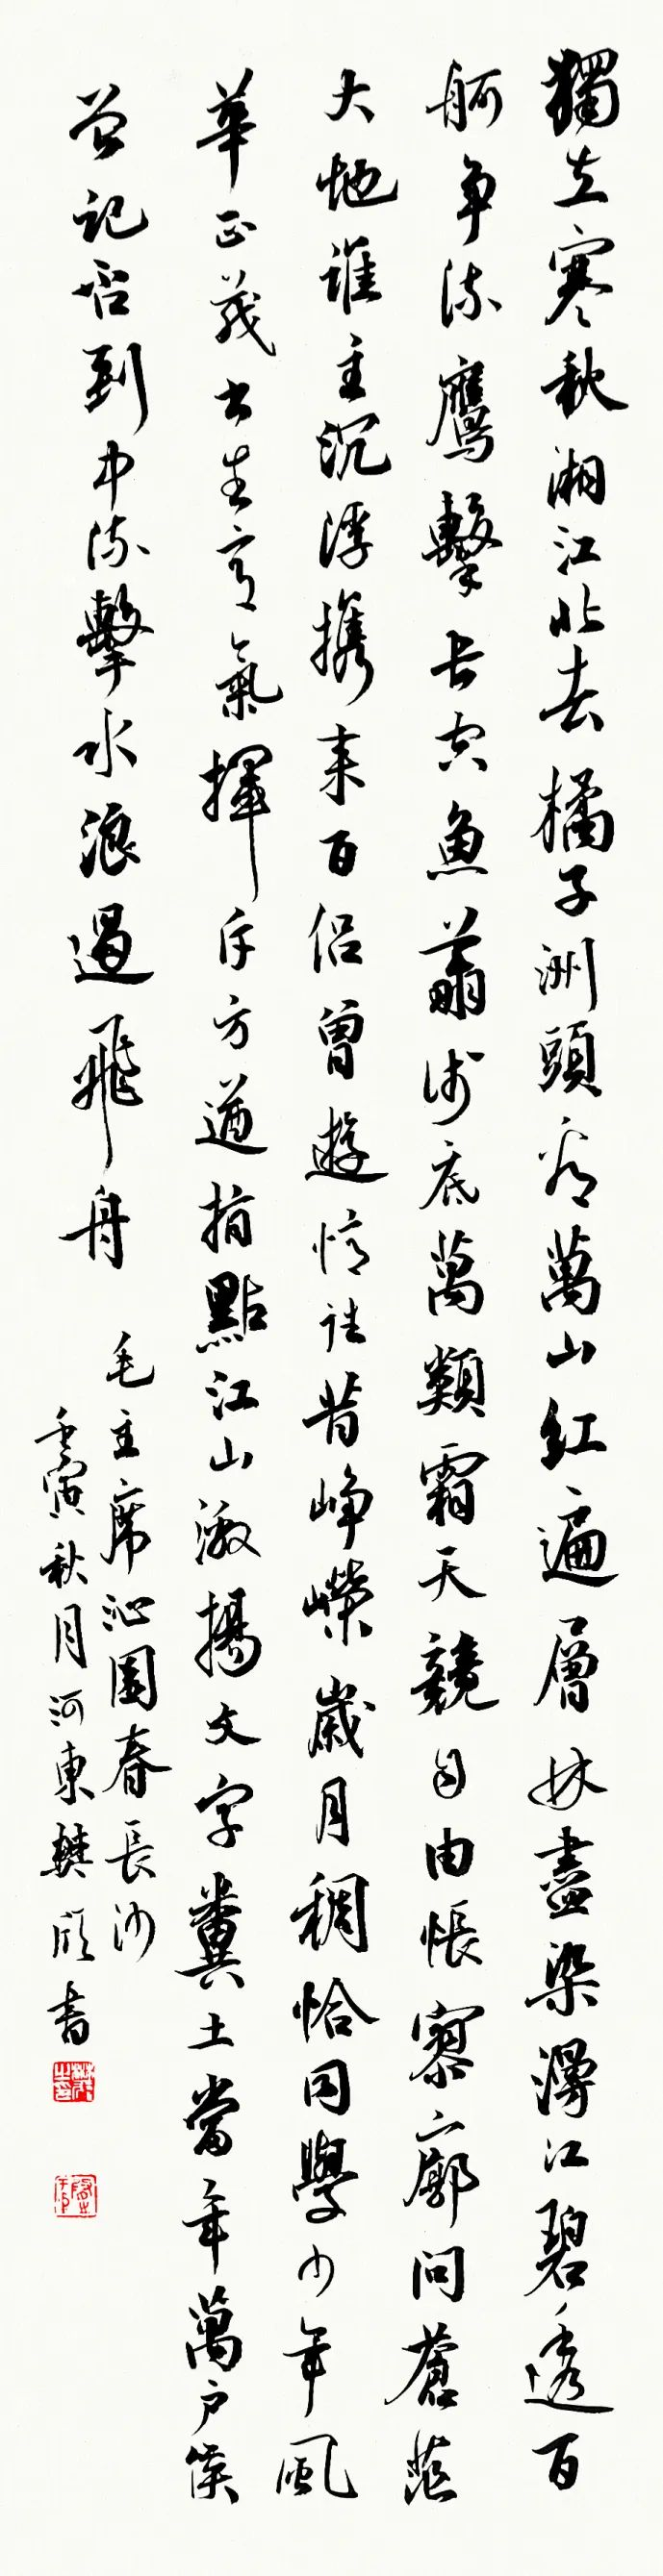 獨立寒秋湘江北去橘子洲頭看萬山紅遍層林盡染漫江碧透百
舸争流鷹擊長空魚翔淺底萬類霜天競自由悵寥廓問蒼茫
大地誰主沉浮携来百侣曾遊憶往昔崢嶸歲月稠恰同學少年風
華正茂書生意氣揮斥方遒指點江山激揚文字糞土當年萬户侯
曾記否到中流擊水浪遏飛舟
毛主席沁園春長沙
壬寅秋月河東樊書